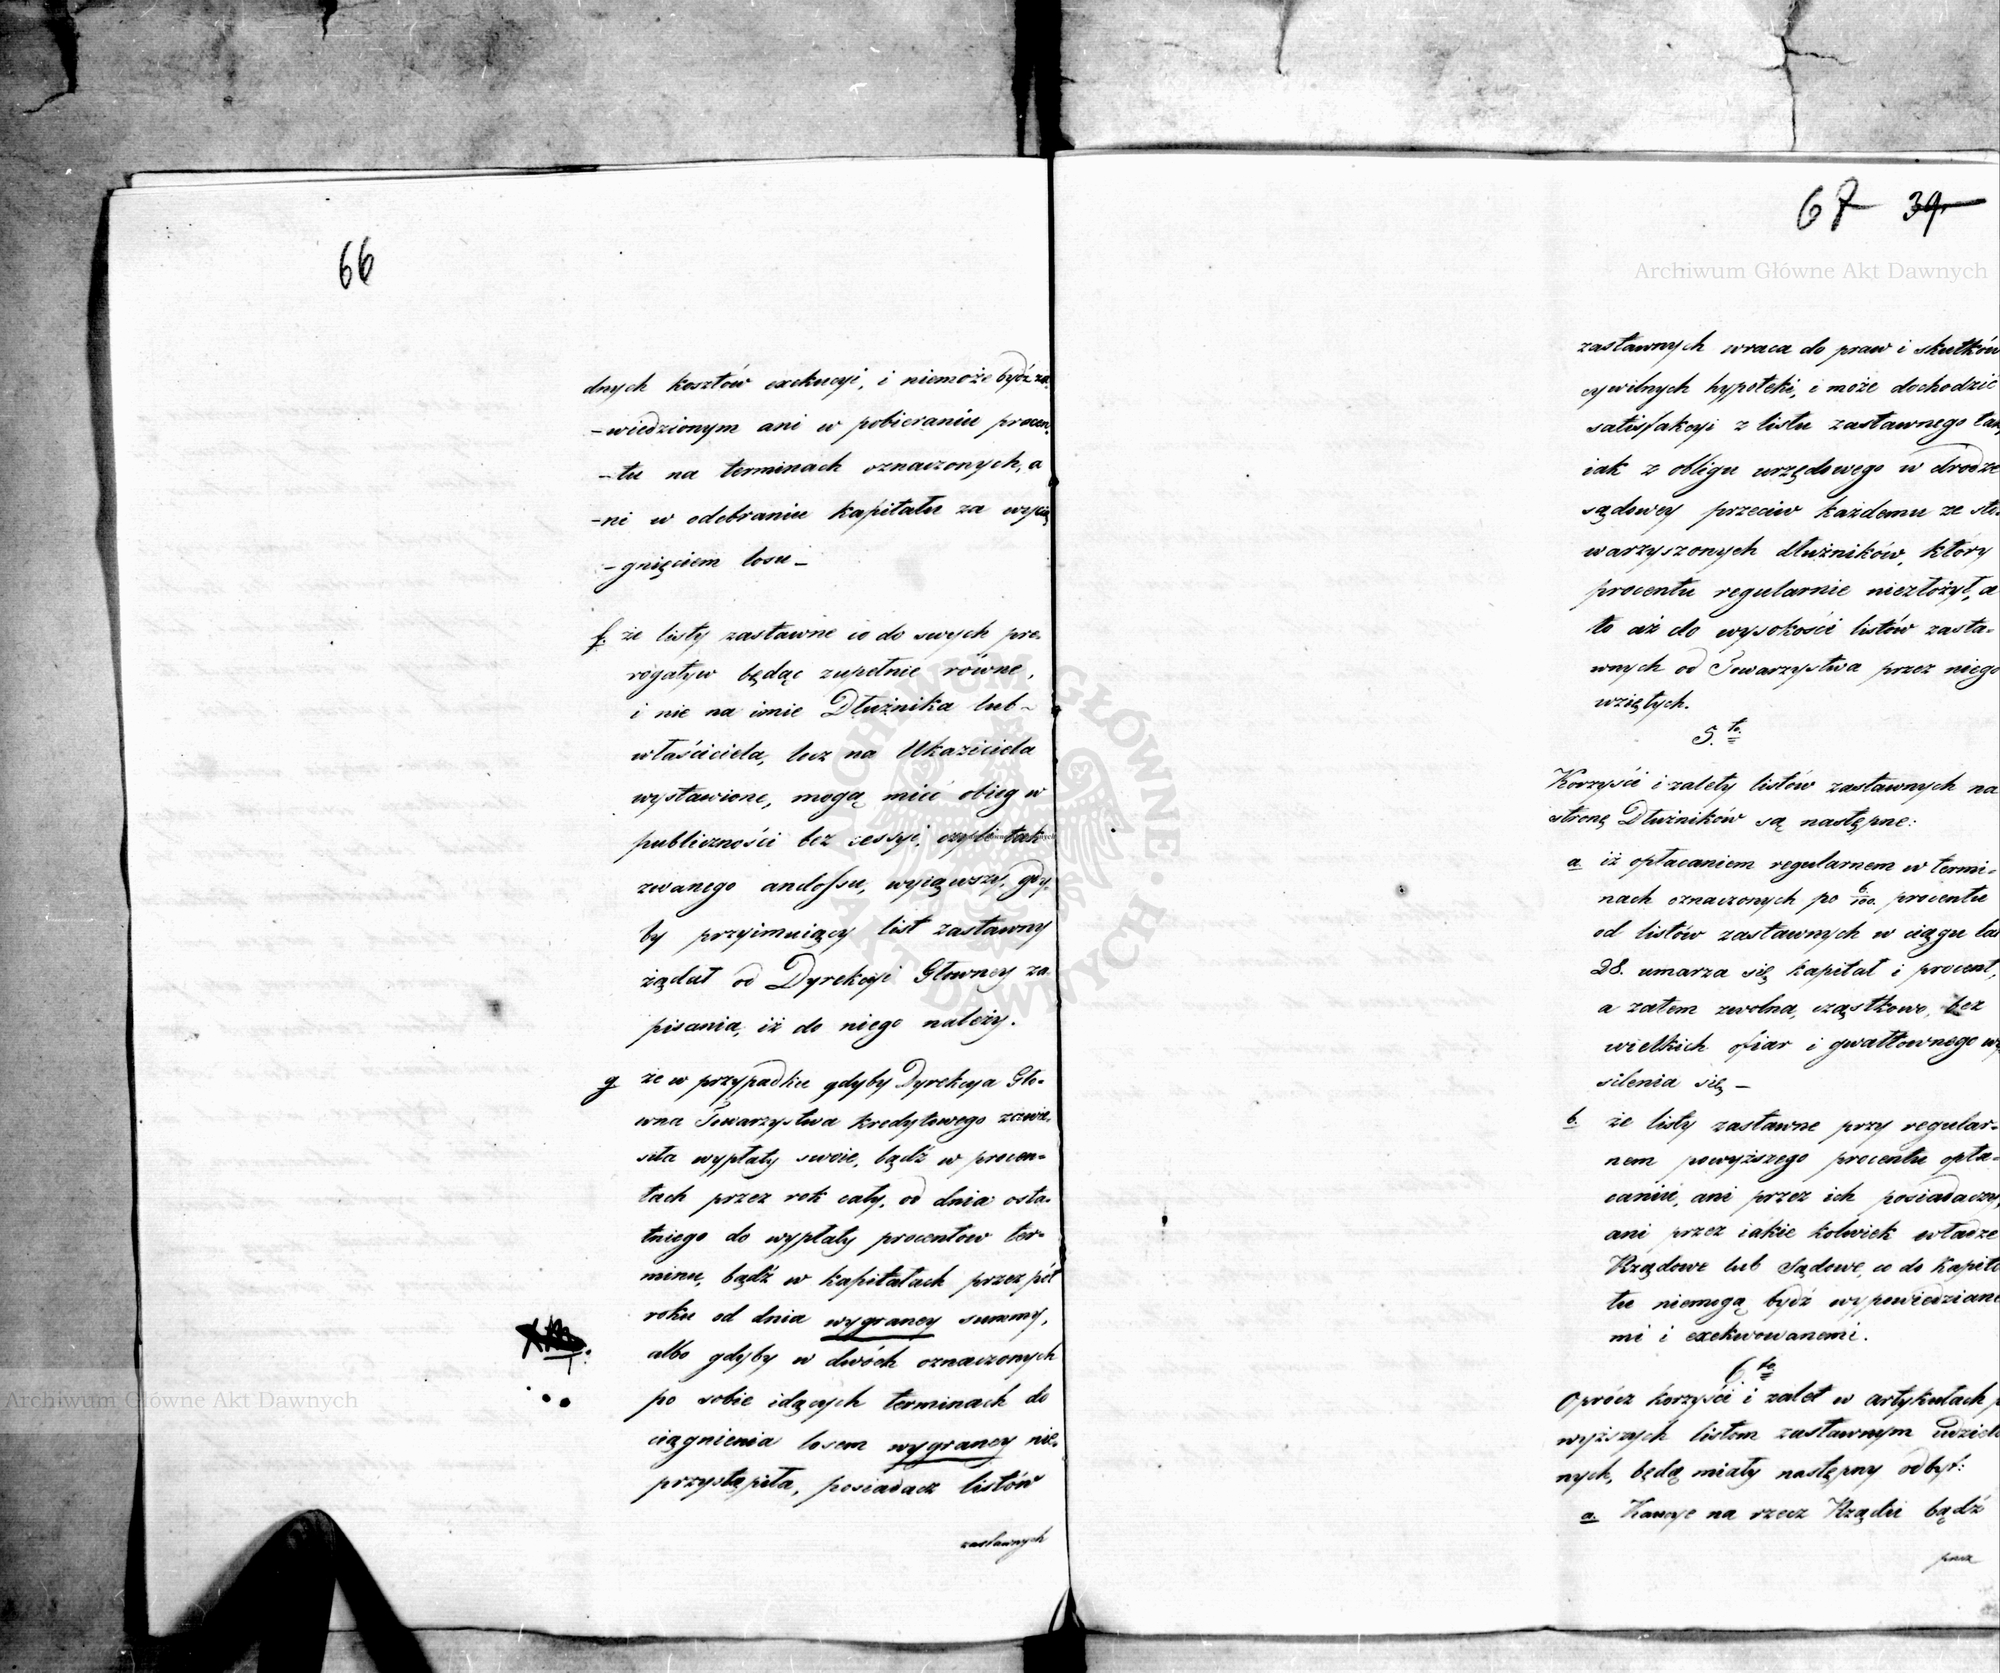 66
dnych kosztów exekucyi, i niemoże bydź za-
-wiedzionym ani w pobieraniu procen-
-tu na terminach oznaczonych, a
-ni w odebraniu kapitału za wycią
-gnięciem losu -
f. że listy zastawne co do swych pre-
rogatyw będąc zupełnie równe,
i nie na imie Dłużnika lub -
właściciela, lecz na Ukaziciela
wystawione, mogą mieć obieg w
publiczności bez cessyi, czyli tak
zwanego andossu, wyiąwszy, gdy-
by przyimuiący list zastawny
żądał od Dyrekcyi Głowney za-
pisania, iż do niego należy.
g że w przypadku gdyby Dyrekcya Gło-
wna Towarzystwa kredytowego zawie-
siła wypłaty swoie, bądź w procen-
tach przez rok cały, od dnia osta-
tniego do wypłaty procentow ter-
minu, bądź w kapitałach przez pół
roku od dnia wygraney summy,
albo gdyby w dwóch oznaczonych
po sobie idących terminach do
ciągnienia losem wygraney nie-
przystąpiła, posiadacz listów
zastawnych
67 39
Archiwum Główne Akt Dawnych
zastawnych wraca do praw i skutków
cywilnych hypoteki, i może dochodzić
satisfakcyi z listu zastawnego tak,
iak z obligu urzędowego w drodze
sądowey przeciw każdemu ze sto-
warzyszonych dłużników, który
procentu regularnie niezłożył, a
to aż do wysokości listów zasta-
wnych od Towarzystwa przez niego
wziętych.
5.to
Korzyści i zalety listów zastawnych na
stronę Dłużników są następne:
a iż opłacaniem regularnem w termi-
nach oznaczonych po 6/100 procentu
od listów zastawnych w ciągu lat
28. umarza się kapitał i procent,
a zatem zwolna, cząstkowo, bez
wielkich ofiar i gwałtownego wy
silenia się -
b. że listy zastawne przy regular-
nem powyższego procentu opła-
caniu, ani przez ich posiadaczy,
ani przez iakie kolwiek władze
Rządowe lub Sądowe, co do kapita
łu niemogą bydź wypowiedziane
mi i exekwowanemi.
6to
Oprócz korzyści i zalet w artykułach p
wyższych listom zastawnym udzielo
nych, będą miały następny odbyt:
a. Kaucye na rzecz Rządu bądź
przez
Archiwum Główne Akt Dawnych
ARCHIWUM GŁÓWNE AKT DAWNYCH